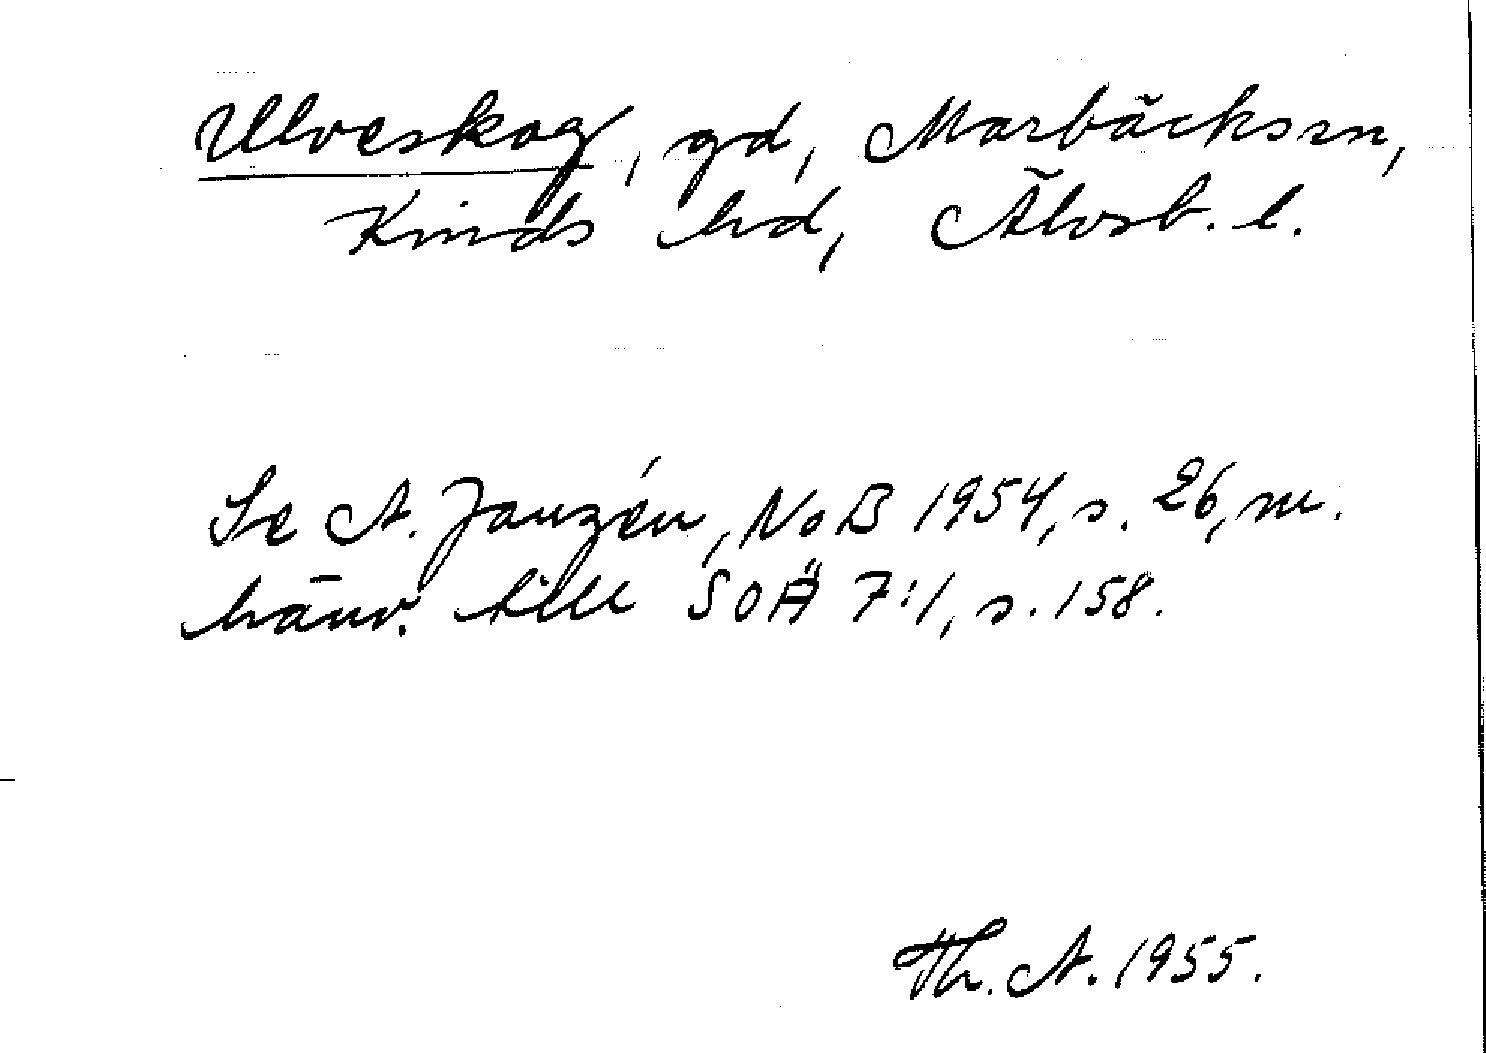 Ulveskog, gd, Marbäck sn,
Kinds hd, Älvsb. l.
Se A. Janzén, NoB 1954, s. 26, m.
hänv. till SOÄ 7:1, s. 158.
Th. A. 1955.